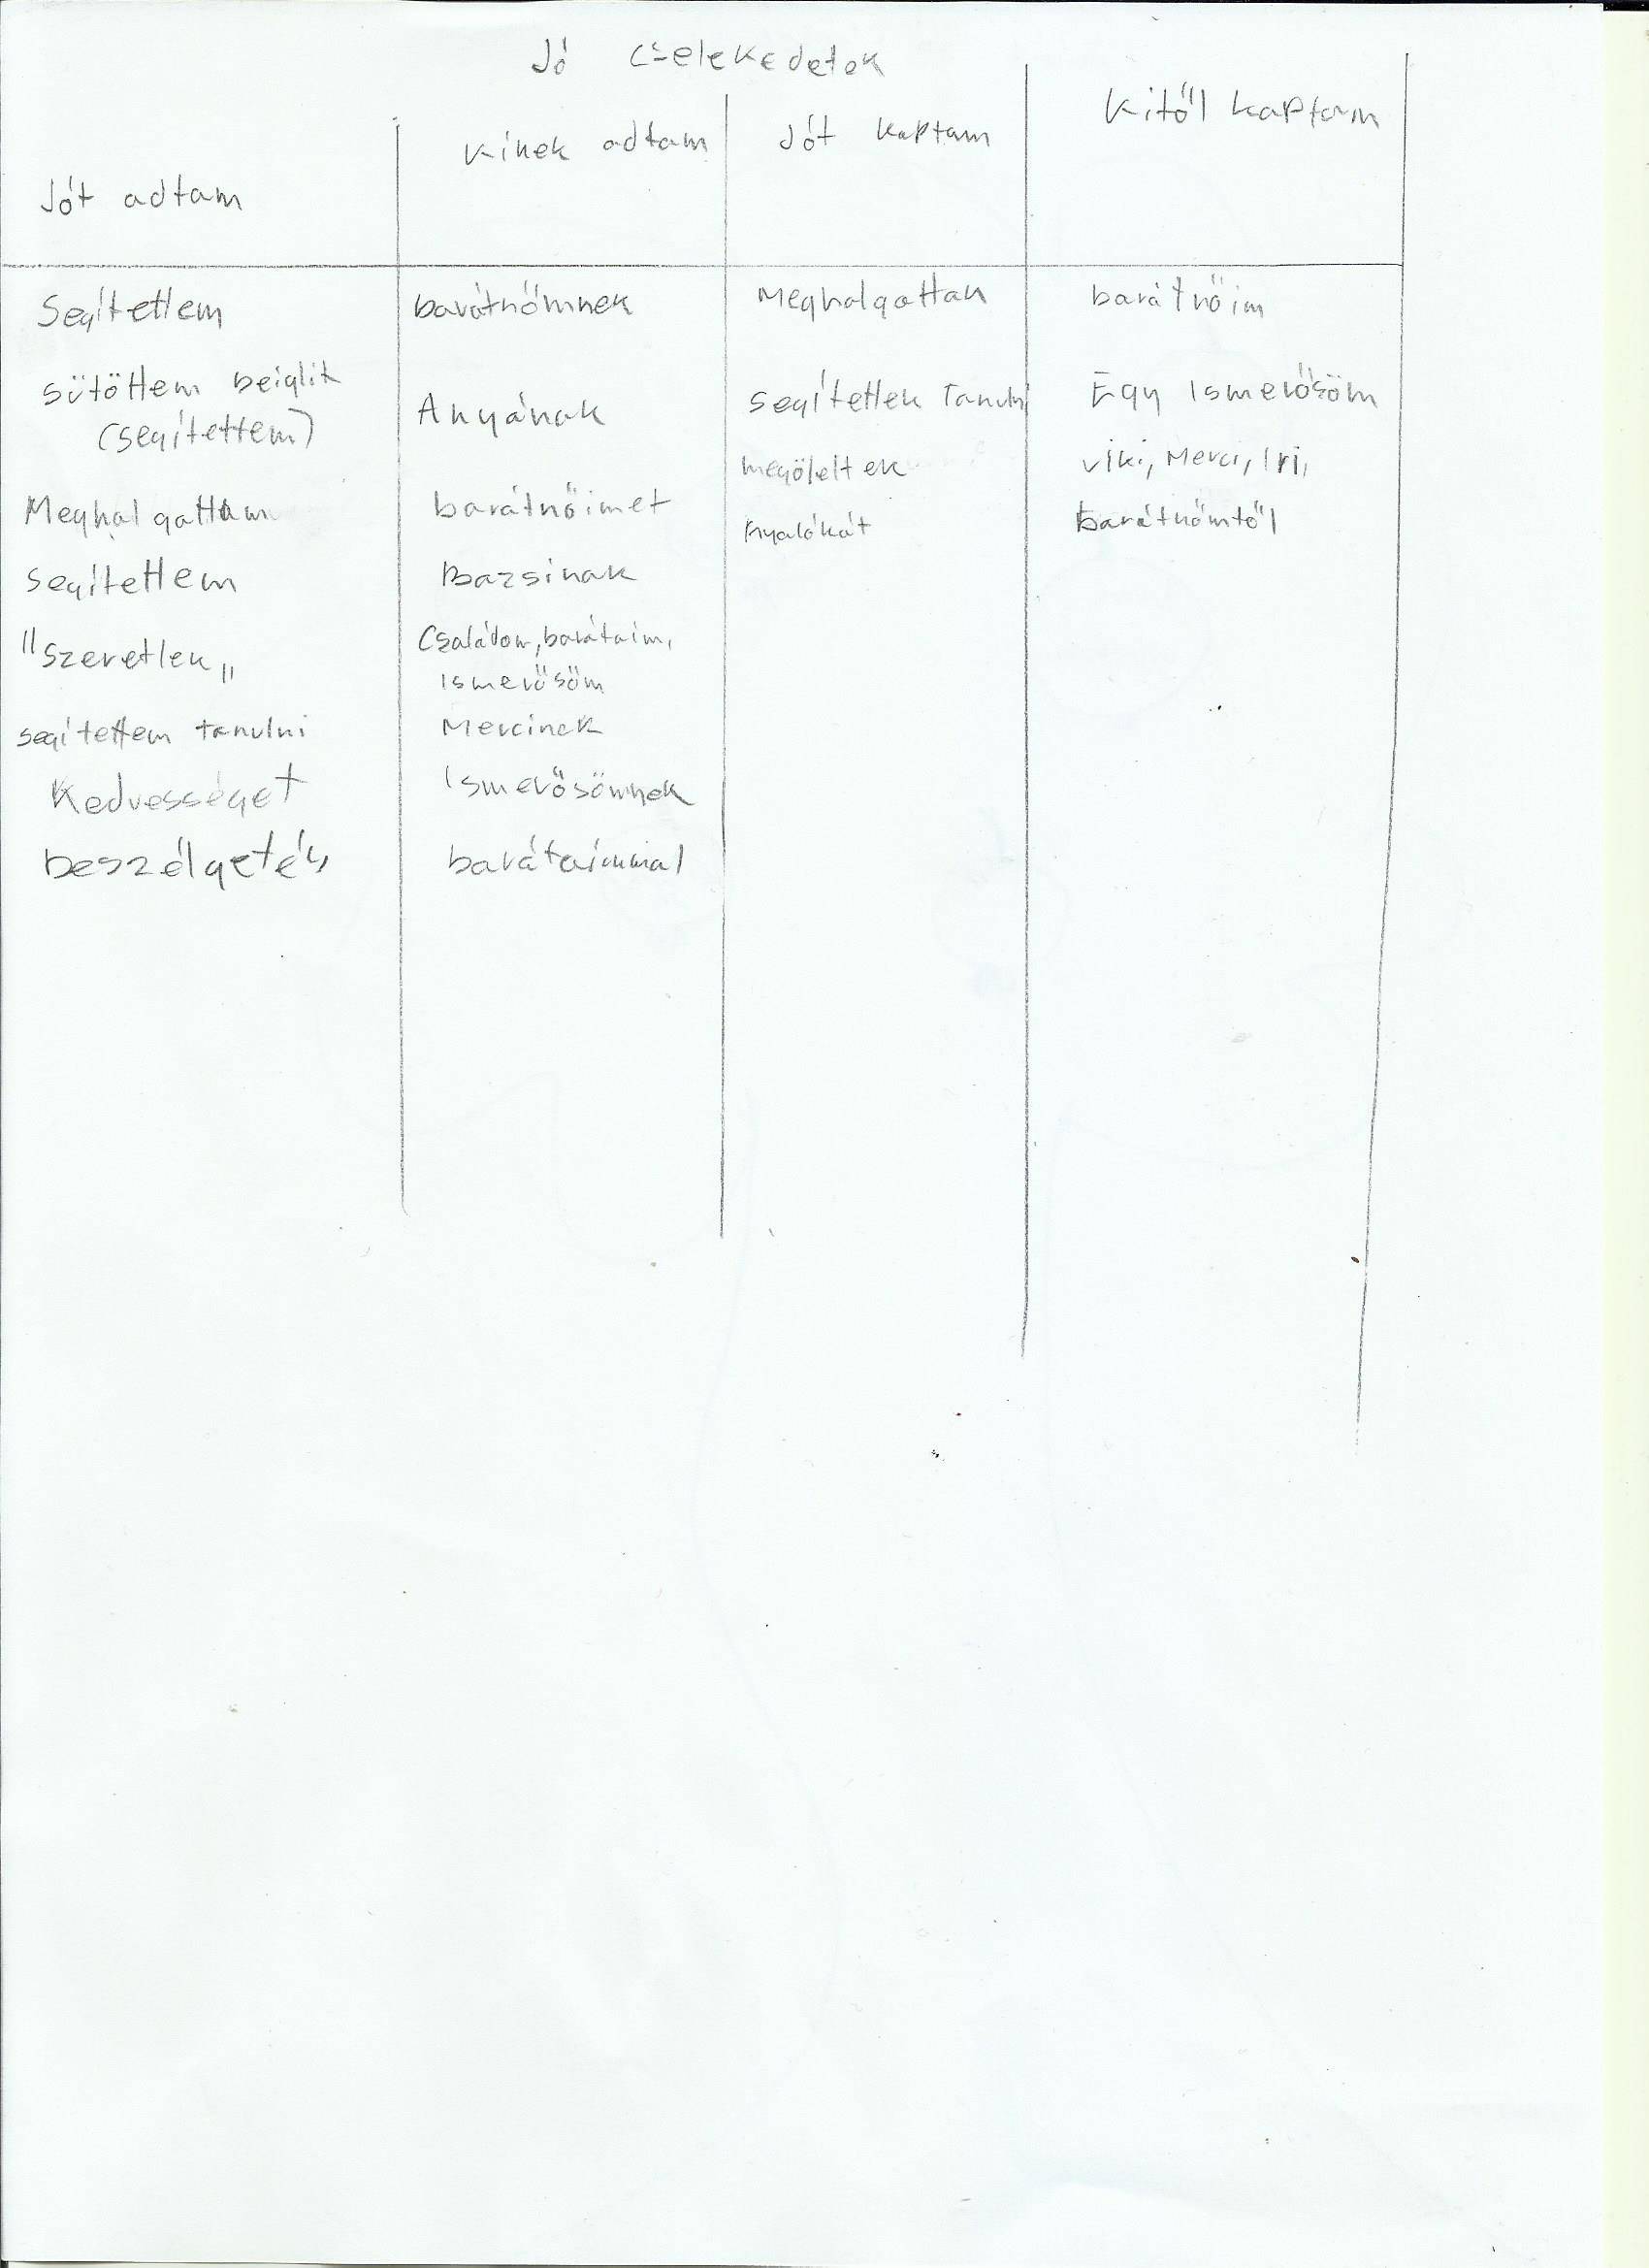 Jó cselekedetek
Jót adtam
Kinek adtam
Jót kaptam
Kitől kaptam
Segítettem
barátnőmnek
Meghalgattak
barátnőim
sütöttem beiglit
(segítettem)
Anyának
segítettek Tanulni
Egy Ismerősöm
megöleltek
Viki, Merci, Iri,
Meghalgattam
barátnőimet
nyalókát
barátnőmtől
segítettem
Bazsinak
"szeretlek„
Családom, barátaim,
Ismerősöm
segítettem tanulni
Mercinek
Kedvességet
Ismerősömnek
beszélgetés
barátaimmal